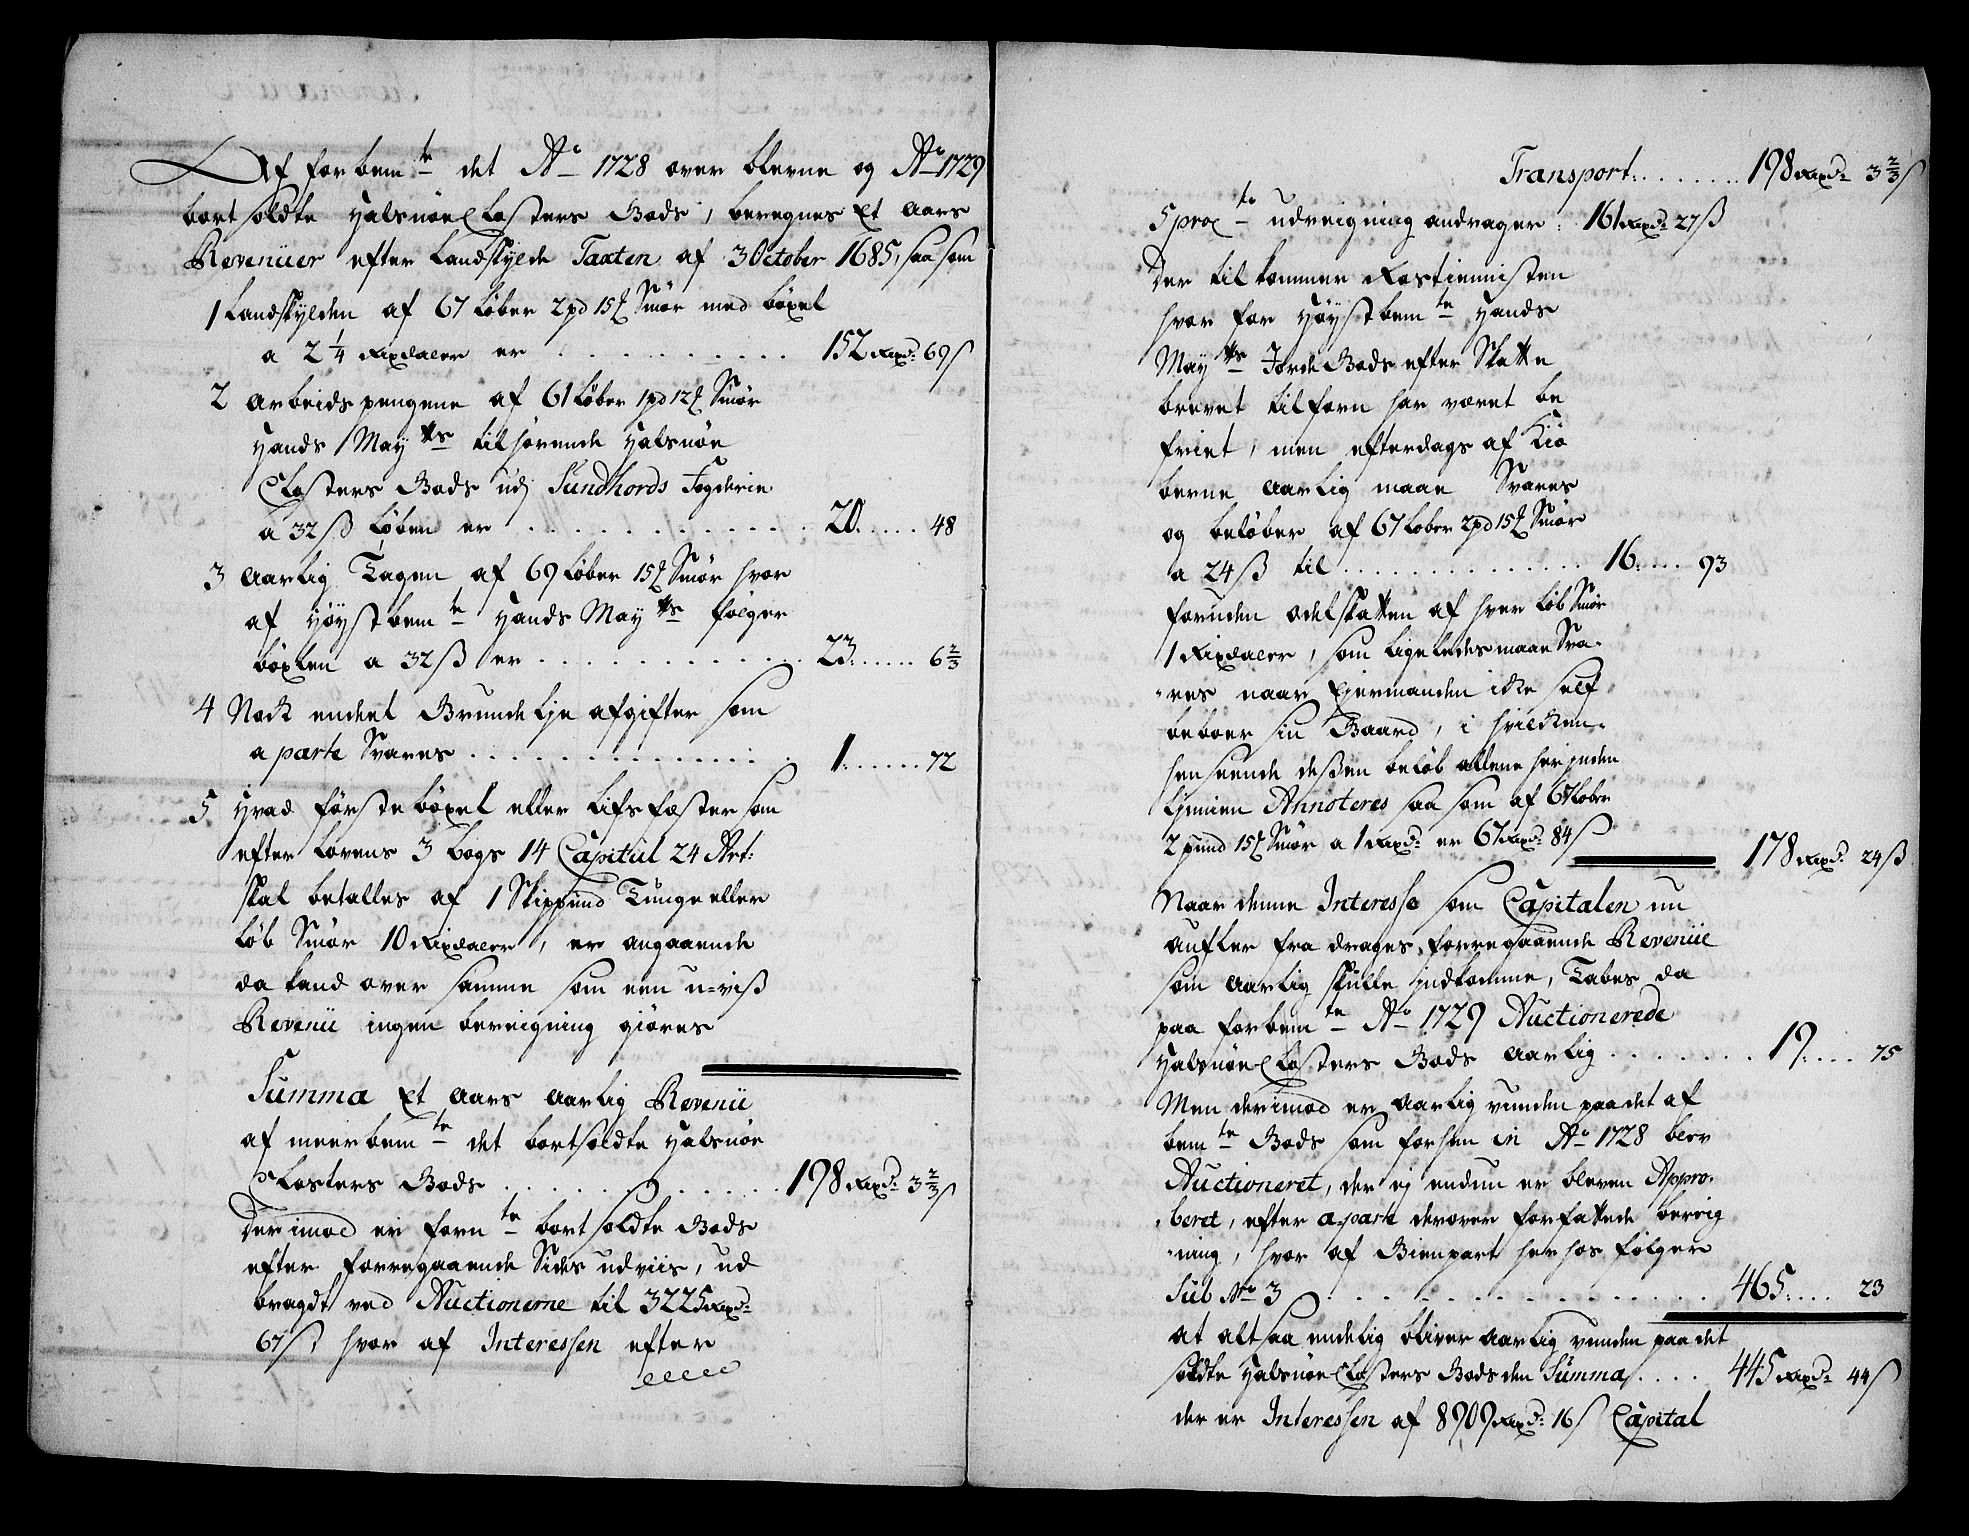 Af forbem te det Ao 1728 over blevne og Ao 1729
bort soldte Halsnøe Closters Gods, beregnes Et Aars
Revenüer efter Landskylds Taxten af 3 October 1685, saa som
1 Landskylden af 67 Løber 2 pd 15 ℔ Smør med böxel
a 2 1/4 Rixdaler er . . . . . . . . . . 152 Rixd: 69 ß
2 Arbeids pengene af 61 Løber 1 pd 12 ℔ Smør
Hands May tts tilhørende Halsnøe
Closters Gods udj Sundhords Fogderie
a 32 ß Løben er . . . . . . . . . . 20. . . . . . 48
3 Aarlig Tagen af 69 Løber 15 ℔ Smør hvor
af Høystbem te Hands May tts følger
böxlen a 32 ß er . . . . . . . . . . 23. . . . . . 6 2/3
4 Nock endeel Grunde Leje afgifter som
a parte Svares . . . . . . . . . . 1. . . . . . 72
5 Hvad förste böxel eller Lifs fæster som
efter Lovens 3 bogs 14 Capitül 24 Art:
skal betalles af 1 Skippund Tunge eller
Løb Smør 10 Rixdaler, er angaaende
da kand over samme som een u-viß
Revenü ingen bereigning giøres
Summa Et Aars Aarlig Revenü
af meerbem te det bortsoldte Halsnøe
Closters Gods . . . . . . . . . . 198 Rixd: 3 2/3 ß
Derimod er forn te bortsoldte Gods
efter forregaaende Sides udviis, ud
bragt ved Auctionerne til 3225 Rixd:
67 ß, hvor af Interessen efter
Transport: . . . . . . . 198 Rixd: 3 2/3 ß
5 proC to udreigning andrager: 161 Rixd: 27 ß
Der til kommer Rostienisten
hvor for Høystbem te Hands
May tts Jorde Gods efter Skatte
brevet tilforn har været be
friet, men efterdags af Kiö
berne Aarlig maae Svares
og beløber af 67 Løber 2 pd 15 ℔ Smør
a 24 ß til . . . . . . . . . . 16. . . . . 93
foruden odelskatten af hver Løb Smør
1 Rixdaler, som ligeledes maae Sva-
res naar Ejermanden icke self
beboer sin Gaard, i hvilcken
henseende deßen beløb allene her inden
Linien Annoteres saa som af 67 Løber
2 pund 15 ℔ Smør a 1 Rixd: er 67 Rixd: 84 ß
178 Rixd: 24 ß
Naar denne Interesse som Capitalen nu
aufler fra drages, forregaaende Revenüe
som Aarlig skulle indkomme, Tabes da
paa forbem te Ao 1729 Auctionerede
Halsnøe Closters Gods Aarlig . . . . . . . 19. . . . 75
Men derimod er Aarlig vunden paa det af
bem te Gods som forhen in Ao 1728 blev
Auctioneret, der ej endnu er bleven Appro-
beret, efter aparte derover forfattede bereig
ning, hvor af Gienpart herhos følger
Sub No 3 . . . . . . . . . . 465. . . . 23
at altsaa endelig bliver Aarlig vunden paa det
soldte Halsnøe Closters Gods den Summa . . . . 445 Rixd: 44 ß
der er Interessen af 8909 Rixd: 16 ß Capital